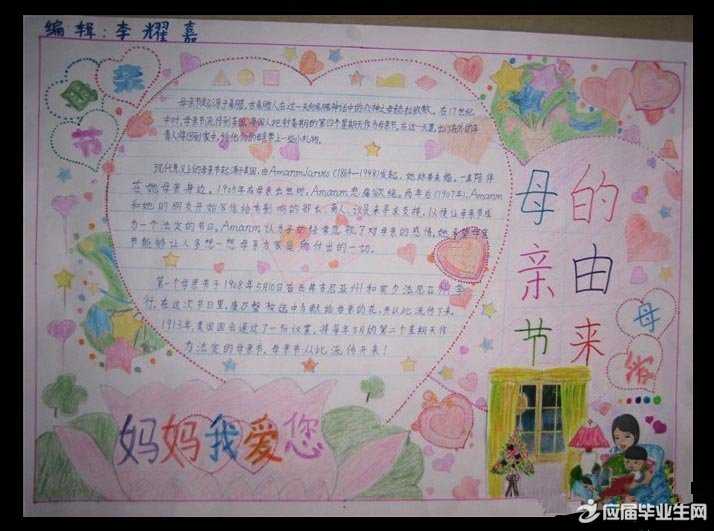 编辑:李耀嘉
母亲
节
母亲节起源于希腊,古希腊人在这一天向希腊神话中的众神之母赫拉致敬。在17世纪
中叶,母亲节流传到英国,英国人把封斋期的第四个星期天作为母亲节。在这一天里,出门在外的年
青人将回到家中,给他们的母亲带上一些小礼物。
现代意义上的母亲节起源于美国,由AmanmJarvis(1864-1948)发起,她终身未婚,一直陪伴
在她母亲身边。1905年在母亲去世时,Amanm悲痛欲绝。两年后(1907年),Amanm
和她的朋友开始写信给有影响的部长、商人、议员来寻求支持,以便让母亲节成
为一个法定的节日。Amanm认为子女经常忽视了对母亲的感情,她希望母亲
节能够让人多想一想母亲为家庭所付出的一切。
第一个母亲节于1908年5月10日在西弗吉尼亚州和宾夕法尼亚州举
行,在这次节日里,康乃馨被选中为献给母亲的花,并从此流传下来。
1913年,美国国会通过了一份议案,将每年5月的第二个星期天作
为法定的母亲节。母亲节从此流传开来!
母亲节
的由来
母
妈妈我爱您
应届毕业生网